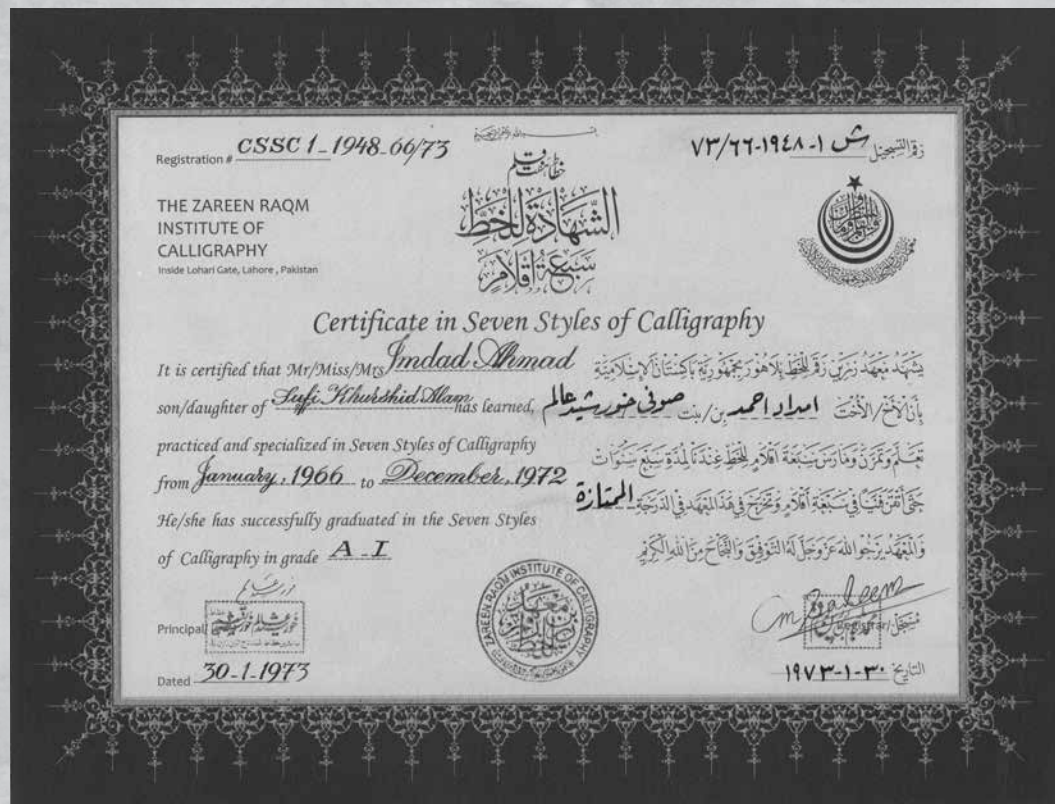 Registration # CSSC 1-1948-66/73
رقم التسجيل ش ١-١٩٤٨-٧٣/٦٦
خطاط هفت قلم
الشهادة للخط
سبعة أقلام
THE ZAREEN RAQM
INSTITUTE OF
CALLIGRAPHY
Inside Lohari Gate, Lahore, Pakistan
Certificate in Seven Styles of Calligraphy
It is certified that Mr/Miss/Mrs Imdad Ahmad
son/daughter of Sufi Khurshid Alam has learned,
practiced and specialized in Seven Styles of Calligraphy
from January, 1966 to December, 1972
He/she has successfully graduated in the Seven Styles
of Calligraphy in grade A-I
يشهد معهد زرين رقم للخط بلاهور بجمهورية باكستان الإسلامية
بأن الأخ/الأخت امداد احمد بن/بنت صوفی خورشید عالم
تعلم وتمرن ومارس سبعة أقلام للخط عندنا لمدة سبع سنوات
حتى أتقن فنيا في سبعة أقلام وتخرج في هذا المعهد في الدرجة الممتازة
والمعهد يرجو الله عز وجل له التوفيق والنجاح من الله الكريم
Principal
Dated 30-1-1973
ZAREEN RAQM INSTITUTE OF CALLIGRAPHY
Registrar/مسجل
التاريخ ٣٠-١-١٩٧٣